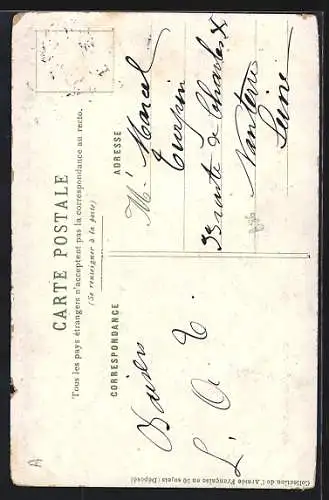 CARTE POSTALE
Tous les pays étrangers n'acceptent pas la correspondance au recto.
(Se renseigner à la poste)
CORRESPONDANCE
ADRESSE
Baisers
L. O. T.
M. Marcel
Turpin
33 route de Charles X
Nanterre
Seine
Collection de l'Armée Française en 50 sujets (Déposé)
A